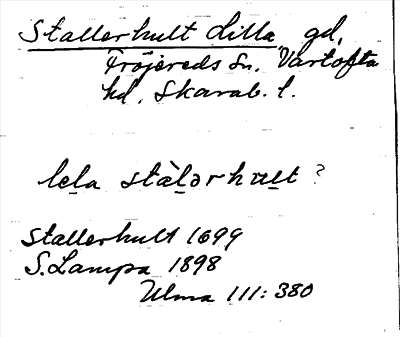 Stallerhult Lilla gd,
Fröjereds sn, Vartofta
hd, Skarab. l.
lela stàlərhult ?
Stallerhult 1699
S. Lampa 1898
Ulma 111:380